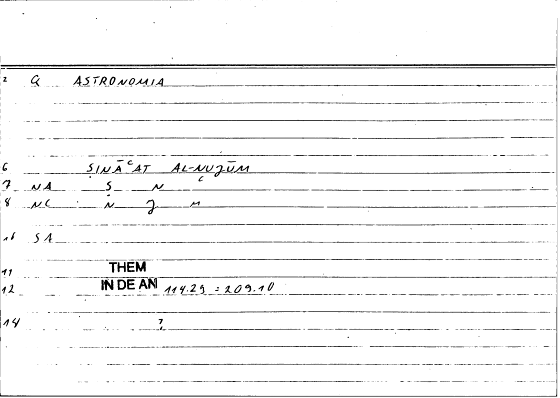 2 Q ASTRONOMIA
6 ṢINĀʿAT AL-NUJŪM
7 NA Ṣ N ʿ
8 NC N J M
10 SA
11 THEM
12 IN DE AN 114.29 = 209.10
14 7,